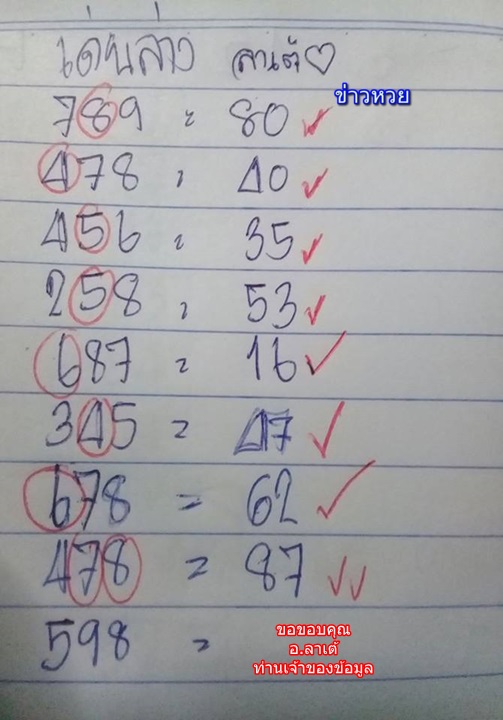 เด่นล่าง ลาเต้♡
ข่าวหวย
789 = 80 ✓
478 = 40 ✓
456 = 35 ✓
258 = 53 ✓
687 = 16 ✓
345 = 47 ✓
678 = 62 ✓
478 = 87 ✓✓
598 =
ขอขอบคุณ
อ.ลาเต้
ท่านเจ้าของข้อมูล